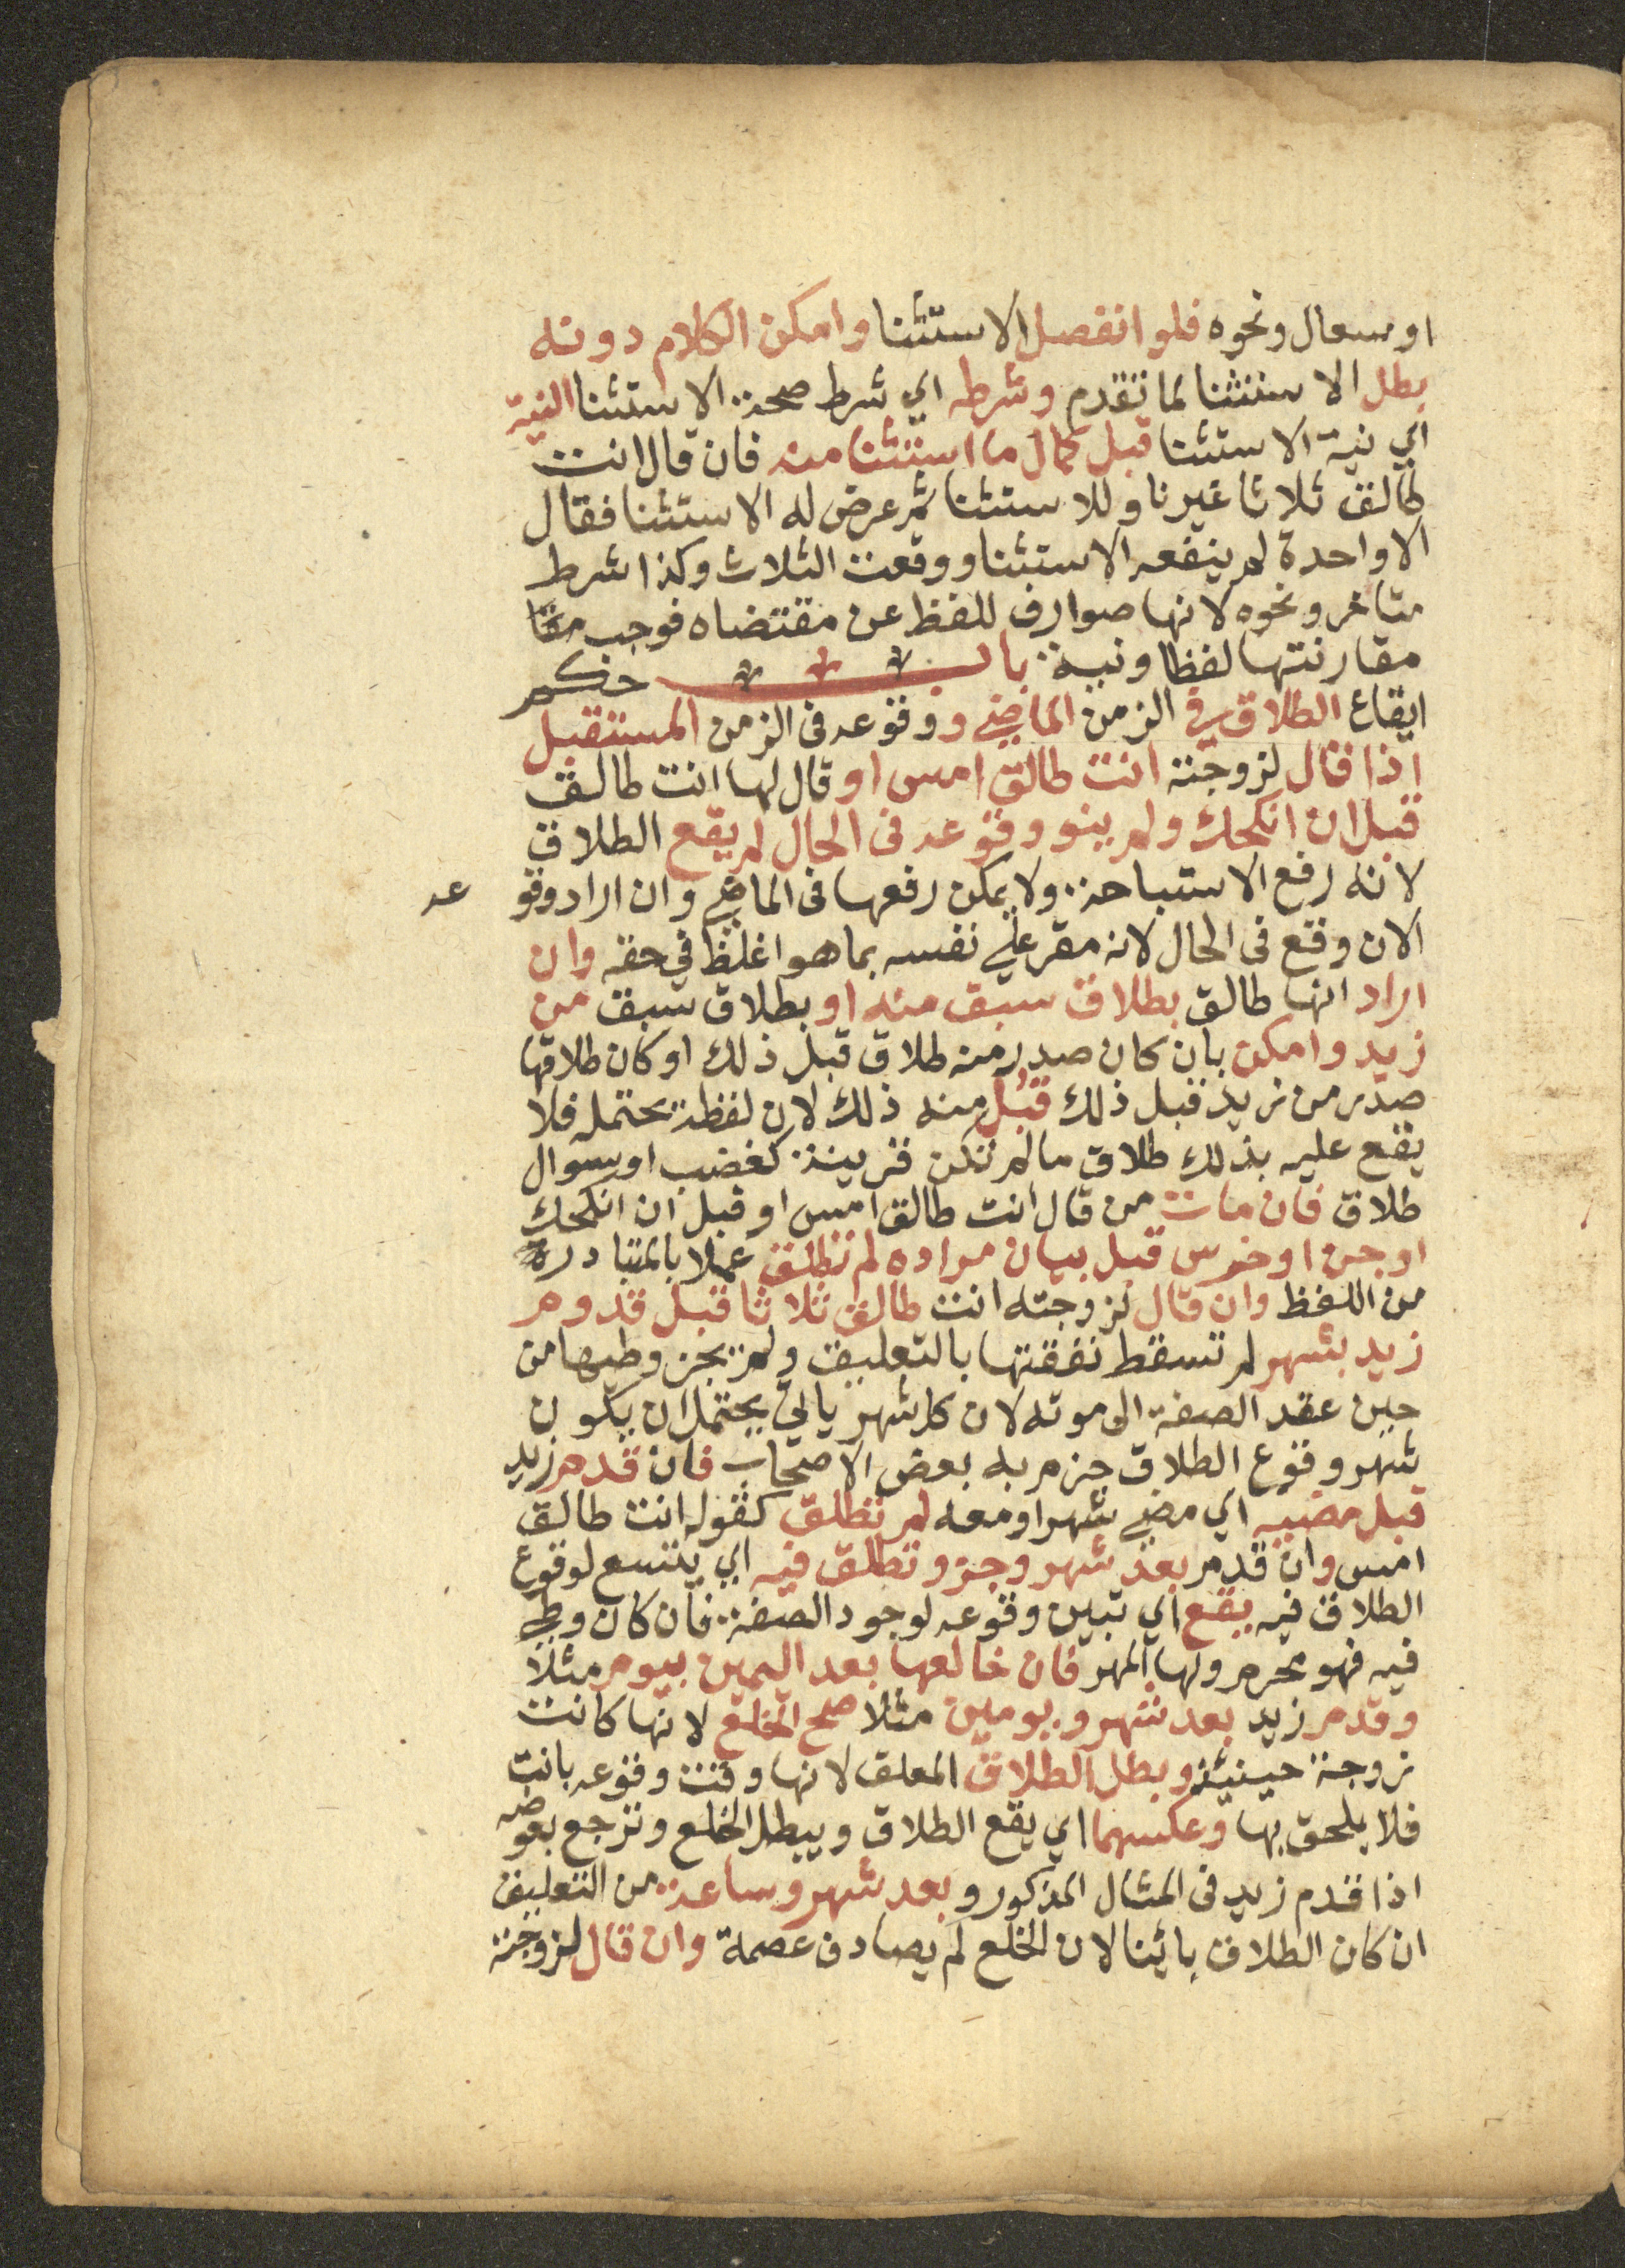 او سعال ونحوه فلو انفصل الاستثنا وامكن الكلام دونه
بطل الاستثنا لما تقدم وشرطه اي شرط صحة الاستثنا النية
اي نية الاستثنا قبل كمال ما استثنا منه فان قال انت
طالق ثلاثا غير ناو للاستثنا ثم عرض له الاستثنا فقال
الا واحدة لم ينفعه الاستثنا ووقعت الثلاث وكذا شرط
متاخر ونحوه لانها صوارف للفظ عن مقتضاه فوجب مقا
مقارنتها لفظا ونية باب حكم
ايقاع الطلاق في الزمن الماضي ووقوعه في الزمن المستقبل
اذا قال لزوجته انت طالق امس او قال لها انت طالق
قبل ان انكحك ولم ينو وقوعه في الحال لم يقع الطلاق
لانه رفع الاستباحة ولا يمكن رفعها في الماضي وان اراد وقو عه
الان وقع في الحال لانه مقر علي نفسه بما هو اغلظ في حقه وان
اراد انها طالق بطلاق سبق منه او بطلاق سبق من
زيد وامكن بان كان صدر منه طلاق قبل ذلك او كان طلاقها
صدر من زيد قبل ذلك قبل منه ذلك لان لفظه يحتمله فلا
يقع عليه بذلك طلاق ما لم تكن قرينة كغضب او سوال
طلاق فان مات من قال انت طالق امس او قبل ان انكحك
او جن او خرس قبل بيان مراده لم تطلق عملا بالمتبادرة
من اللفظ وان قال لزوجته انت طالق ثلاثا قبل قدوم
زيد بشهر لم تسقط نفقتها بالتعليق ولم يجز وطيها من
حين عقد الصفة الى موته لان كل شهر ياتي يحتمل ان يكون
شهر وقوع الطلاق جزم به بعض الاصحاب فان قدم زيد
قبل مضيه اي مضي شهر او معه لم تطلق كقوله انت طالق
امس وان قدم بعد شهر وجزو تطلق فيه اي يتسع لوقوع
الطلاق فيه يقع اي تبين وقوعه لوجود الصفة فان كان وطي
فيه فهو محرم ولها المهر فان خالعها بعد اليمين بيوم مثلا
وقدم زيد بعد شهر ويومين مثلا صح الخلع لانها كانت
زوجة حينيذ وبطل الطلاق المعلق لانها وقت وقوعه بانت
فلا يلحق بها وعكسهما اي يقع الطلاق ويبطل الخلع وترجع بعوضه
اذا قدم زيد في المثال المذكور وبعد شهر وساعة من التعليق
ان كان الطلاق باينا لان الخلع لم يصادف عصمة وان قال لزوجته